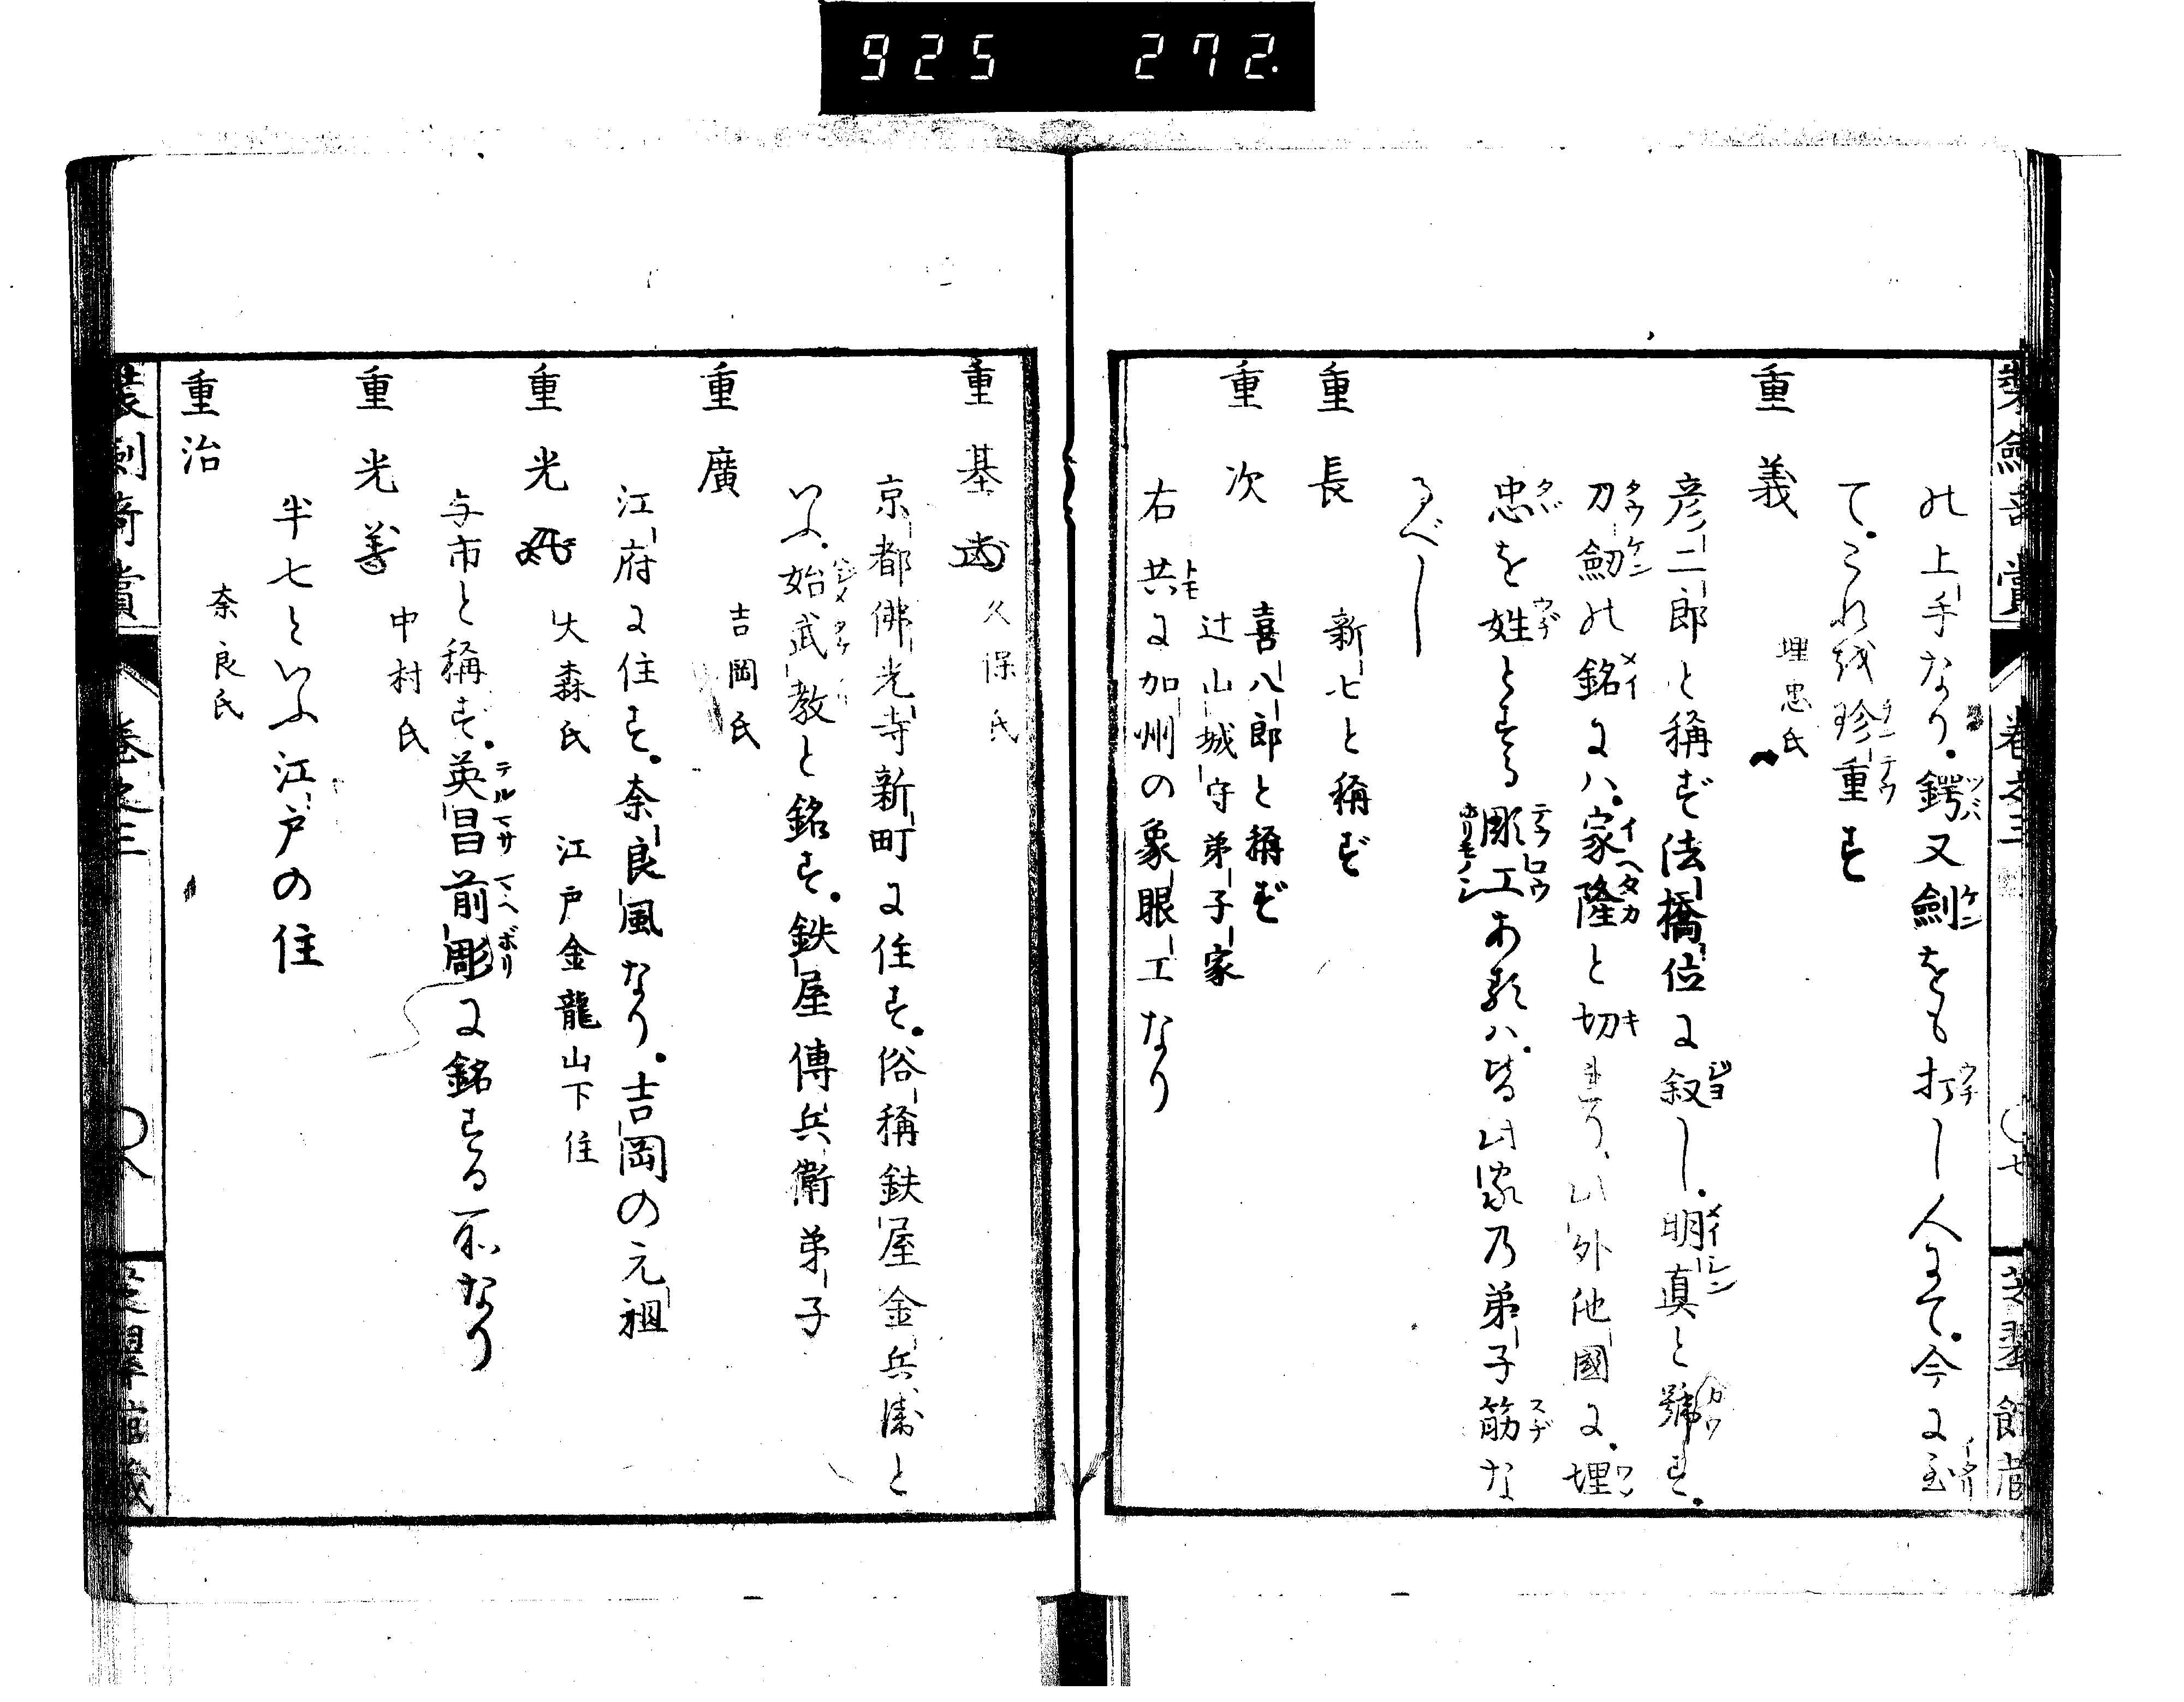 925 272.
装劔竒賞 卷之三 七 芝翠館藏
の上手なり。鍔又劍をも打し人にて。今に至
て。これを珍重す
重義 埋忠氏
彦二郎と稱ず法橋位に叙し。明真と號す。
刀劔の銘には。家隆と切きり、此外他國に。埋
忠を姓とする彫工あまたハ。皆此家乃弟子筋な
るべし
重長 新七と稱ず
重次 喜八郎と稱ず
辻山城守弟子家
右共に加州の象眼工なり
重基 久保氏
京都佛光寺新町に住す。俗稱鉄屋金兵衛と
いふ。始武教と銘す。鉄屋傳兵衛弟子
重廣 吉岡氏
江府に住す。奈良風なり。吉岡の元祖
重光 大森氏 江戸金龍山下住
与市と稱す。英昌前彫に銘する所なり
重光 中村氏
半七といふ江戸の住
重治 奈良氏
装劔竒賞 卷之三 芝翠館藏